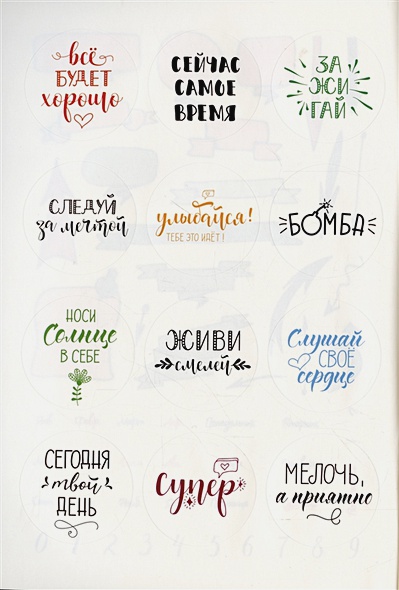 всё
БУДЕТ
хорошо
СЕЙЧАС
САМОЕ
ВРЕМЯ
ЗА
ЖИ
ГАЙ
СЛЕДУЙ
за мечтой
улыбайся!
ТЕБЕ ЭТО ИДЁТ!
БОМБА
НОСИ
Солнце
В СЕБЕ
ЖИВИ
смелей
Слушай
СВОЁ
сердце
СЕГОДНЯ
твой
ДЕНЬ
Супер
МЕЛОЧЬ,
а приятно
0 1 2 3 4 5 6 7 8 9